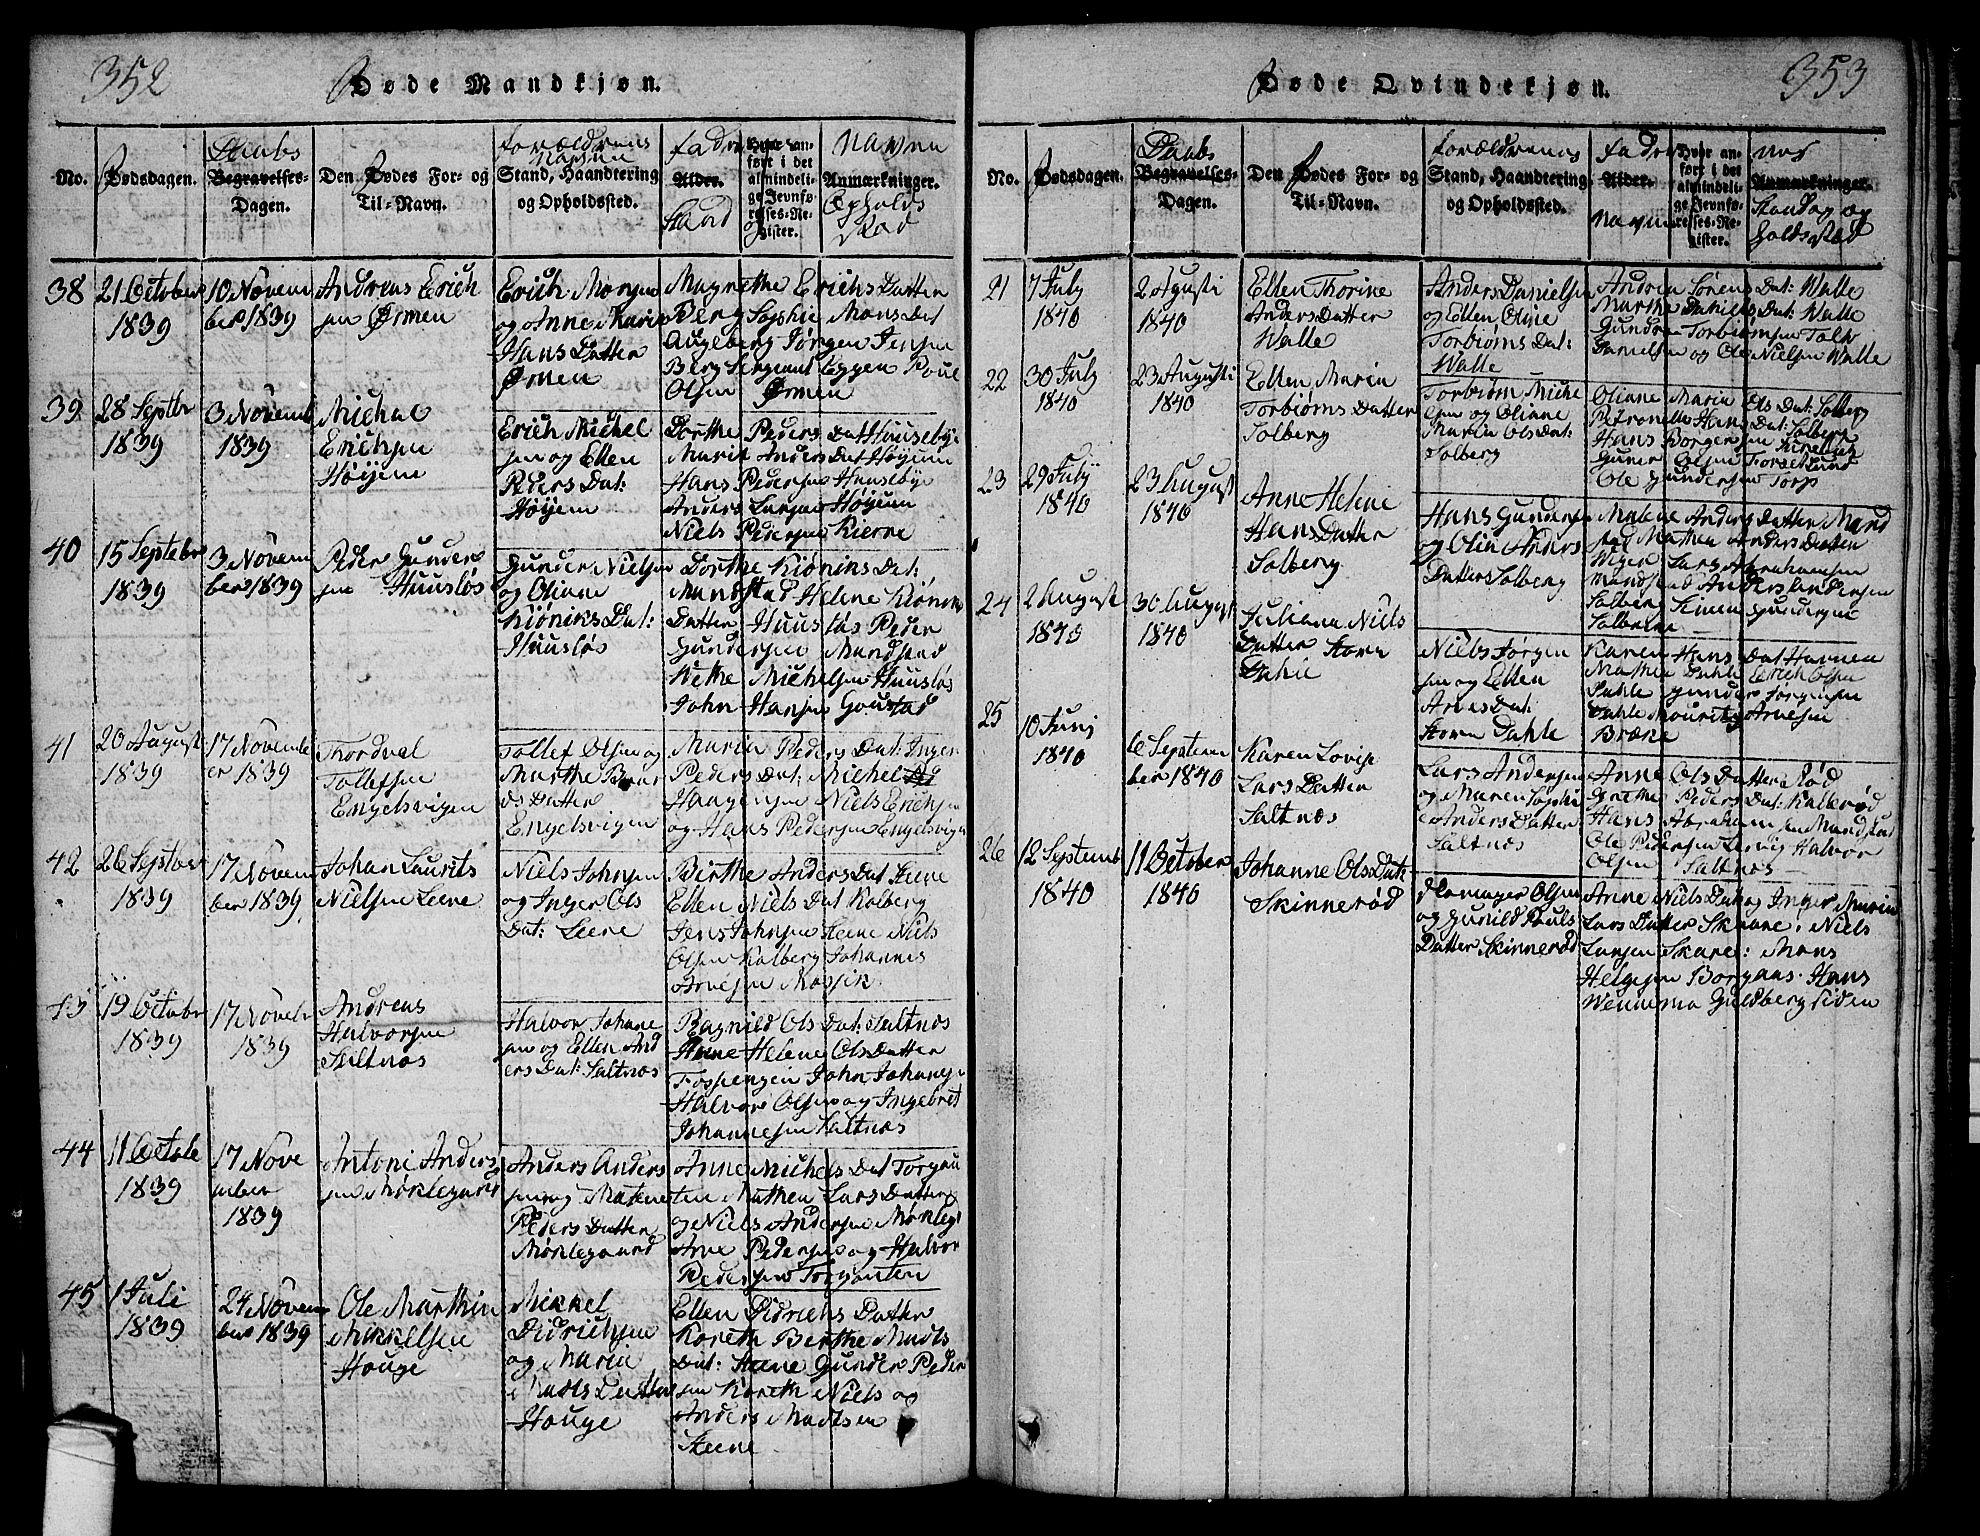 352
Døde Mandkjøn.
No.
Dødsdagen.
Daabs
Begravelses-
Dagen.
Den Dødes For- og
Til-Navn.
Forældrens
Navne
Stand, Haandtering
og Opholdssted.
Fadr
Alder.
Stand
Hvor an-
ført i det
almindeli-
ge Jevnfø-
relses-Re-
gister.
Navne
Anmærkninger.
Opholds
Stad
38
21 October
1839
10 Novem
ber 1839
Andreas Erich
sen Ørmen
Erich Morgen
og Anne Marie
Hans Datter
Ørmen
Magnethe Erichs Datter
Berg Sophie Mons Dat
Augeberg Jørgen Jensen
Berg Sergeant Eggen Poul
Olsen Ørmen
39
28 Septbr
1839
3 Novemb
1839
Michal
Erichsen
Høyene
Erich Michel
sen og Ellen
Peders Dat:
Høyem
Dorthe Peders Dat Huusebye
Marit Anders Dat Høyum
Hans Pedersen Huusløye
Anders Larsen Høyum
Niels Pedersen Kierne
40
15 Septebr
1839
3 Novem
ber 1839
Peder Gunder
sen Huusløs
Gunder Nielsen
og Oliane
Kiøniks Dat:
Huusløs
Dorthe Kiøniks Dat:
Mandstad Helene Kiøniks
Datter Huusløs Peder
Gundersen Mandstad
Wethe Michelsen Huusløs
John Hansen Goustad
41
20 August
1839
17 Novemb
er 1839
Thordval
Tollefsen
Engelsvigen
Tollef Olsen og
Marthe Baar
ds Datter
Engelsvigen
Maria Peders Dat: Inger
Peders Dat: Michel
Haagensen Niels Erichsen
og Hans Pedersen Engelsvigen
42
26 Septber
1839
17 Novem
ber 1839
Johan Laurits
Nielsen Leene
Niels Johnsen
og Inger Ols
Dat: Leene
Birthe Anders Dat Steene
Ellen Niels Dat Kolberg
Jens Johnsen Steene Niels
Olsen Kolberg Johannes
Arnesen Rossik
43
19 Octobr
1839
17 Novebr
1839
Andreas
Halvorsen
Saltnæs
Halvor Johane
sen og Ellen And
ers Dat: Saltnæs
Ragnild Ols Dat: Saltnæs
Anne Helene Ols Datter
Fosspengen John Johansen
Halvor Olsen og Ingebret
Johannesen Saltnæs
44
11 Octobe
1839
17 Nove
mber
1839
Antoni Anders
sen Mørkegaard
Anders Anders
sen og Matene
Peders Datter
Mørkegaard
Anne Michels Dat Torgau
ten Mathea Lars Datter
og Niels Andersen Mørkeg:
Arve Pedersen og Halvor
Pedersen Torgauten
45
1 Juli
1839
24 Novem
ber 1839
Ole Marthin
Mikkelsen
Houge
Mikkel
Didrichsen
og Maria
Mads Datter
Houge
Ellen Didrichs Datter
Koreth Berthe Mads
Dat: Steene Gunder Peder
sen Koreth Niels og
Anders Madsen
Steene
353
Døde Qvindekjøn.
No.
Dødsdagen.
Daabs
Begravelses-
Dagen.
Den Dødes For- og
Til-Navn.
Forældrenes
Stand, Haandtering
og Opholdssted.
Fadr
Alder.
Navne
Hvor an-
ført i det
almindeli-
ge Jevnfø-
relses-Re-
gister.
Anmærkninger.
Stand og op
holdssted
21
7 July
1840
2 Agusti
1840
Ellen Thorine
Anders Datter
Walle
Anders Danielsen
og Ellen Oline
Torbiøms Dat:
Walle
Andrea Sørens Dat: Walle
Marthe Daniels Dat: Walle
Gunder Torbiømsen Tolk
Danielsen og Ole Nielsen Walle
22
30 July
1840
23 Augusti
1840
Ellen Maria
Torbiøms Datter
Solberg
Torbiøm Miche
lsen og Oliane
Maria Ols Dat:
Solberg
Oliane Maria Ols Dat: Solberg
Petronelle Hans Dat: Solberg
Hans Borgersen
Guner Olsen
Ole Gundersen Torp
23
29 July
1840
23 August
1840
Anne Helene
Hans Datter
Solberg
Hans Gunders
og Olia Anders
Datter Solberg
Malene Anders Datter Mand
stad Mathea Anders Datter
Wiger Lars Abrahamsen
Mandstad Anders Andersen
Solberg Simen Gundersen
Solberg
24
2 August
1840
30 August
1840
Juliana Niels
Datter Store
Dahle
Niels Jørgen
sen og Ellen
Arves Dat:
Store Dahle
Karen Hans Dat Haven
Mathea Dahle Erich Olsen
Dahle Gunder Jørgensen
Dahle Mouritz Arvesen
Bræke
25
10 Junj
1840
6 Septem
ber 1840
Karen Lovise
Lars Datter
Saltnæs
Lars Andersen
og Maren Sophi
e Anders Datter
Saltnæs
Anne Ols Datter Rød
Grethe Peders Dat: Kallerød
Hans Abrahamsen Mandstad
Ole Pedersen Lervig Halvor
Olsen Saltnæs
26
12 Septemb
1840
11 October
1840
Johanne Ols Dat:
Skinnerød
Ole Olsen
og Gunild Pouls
Datter Skinnerød
Anne Niels Dat og Inger Maria
Lars Datter Skaare: Niels
Larsen Skare: Mons
Helgesen Borgaas. Hans
Wennema Guldberg Siden